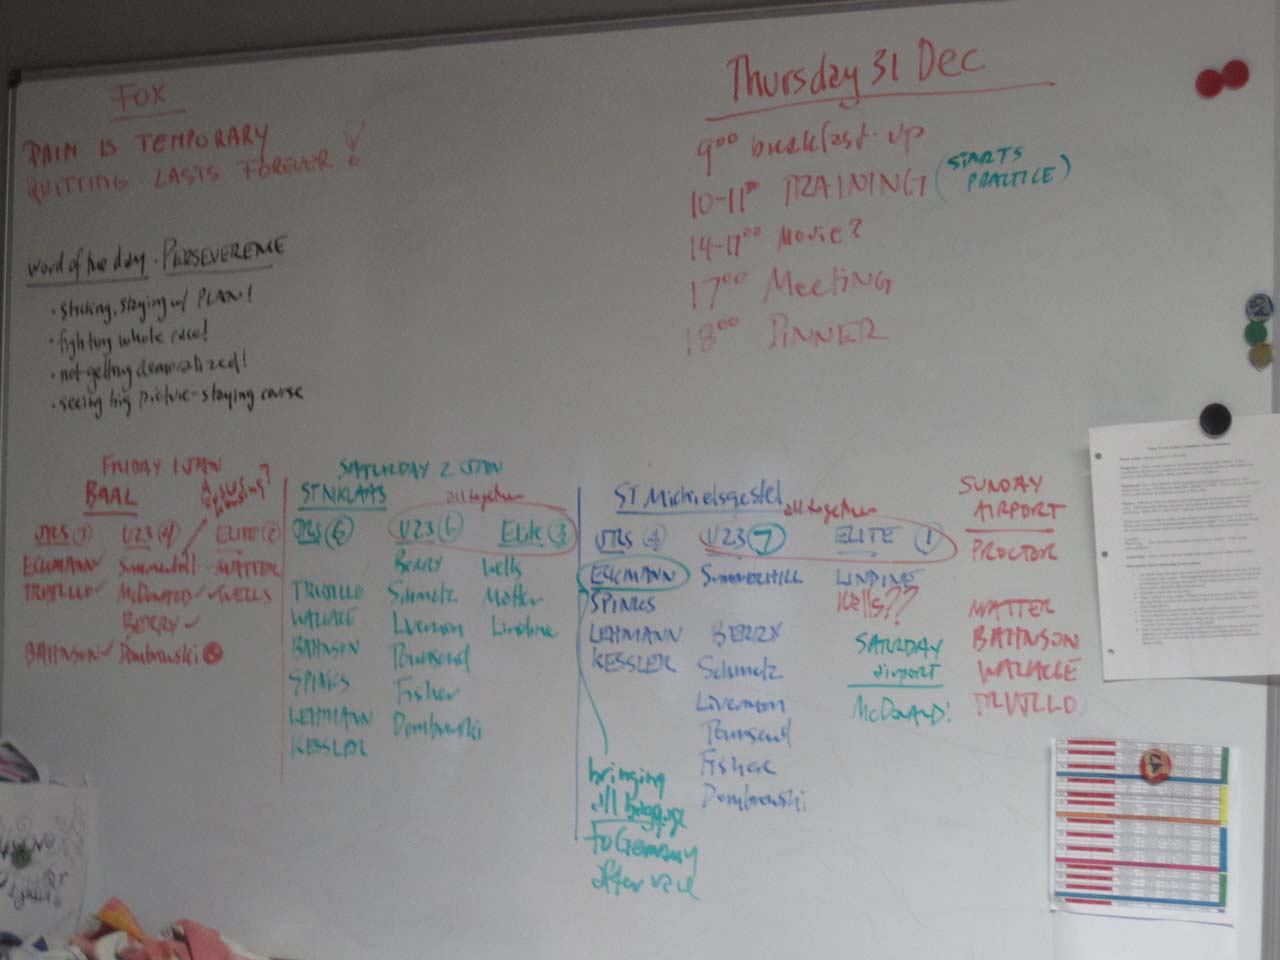 FOX
PAIN IS TEMPORARY
QUITTING LASTS FOREVER!
Thursday 31 Dec
9⁰⁰ breakfast-up
10-11³⁰ TRAINING (STARTS PRACTICE)
14-17⁰⁰ Movie?
17⁰⁰ Meeting
18⁰⁰ DINNER
word of the day - PERSEVERENCE
• sticking, staying w/ PLAN!
• fighting whole race!
• not getting demoralized!
• seeing big picture - staying course
FRIDAY 1 JAN
BAAL
JRS
ECKMANN
TRUJILLO
BAHNSON
U23 4
Summerhill
McDONALD
BERRY
Dombrowski
ELITE 2
MATTER
WELLS
SATURDAY 2 JAN
ST NIKLAAS
all together
JRS 6
TRUJILLO
WALLACE
BAHNSON
SPINKS
LEHMANN
KESSLER
U23 6
BERRY
Schmetz
Livermon
Townsend
Fisher
Dombrowski
Elite 3
Wells
Matter
Lindine
ST Michielsgestel
all together
JRS 4
ECKMANN
SPINKS
LEHMANN
KESSLER
bringing
all baggage
to Germany
after race
U23 7
SUMMERHILL
BERRY
Schmetz
Livermon
Townsend
Fisher
Dombrowski
ELITE 1
LINDINE
Wells??
SATURDAY
airport
McDONALD!
SUNDAY
AIRPORT
PROCTOR
MATTER
BAHNSON
WALLACE
TRUJILLO